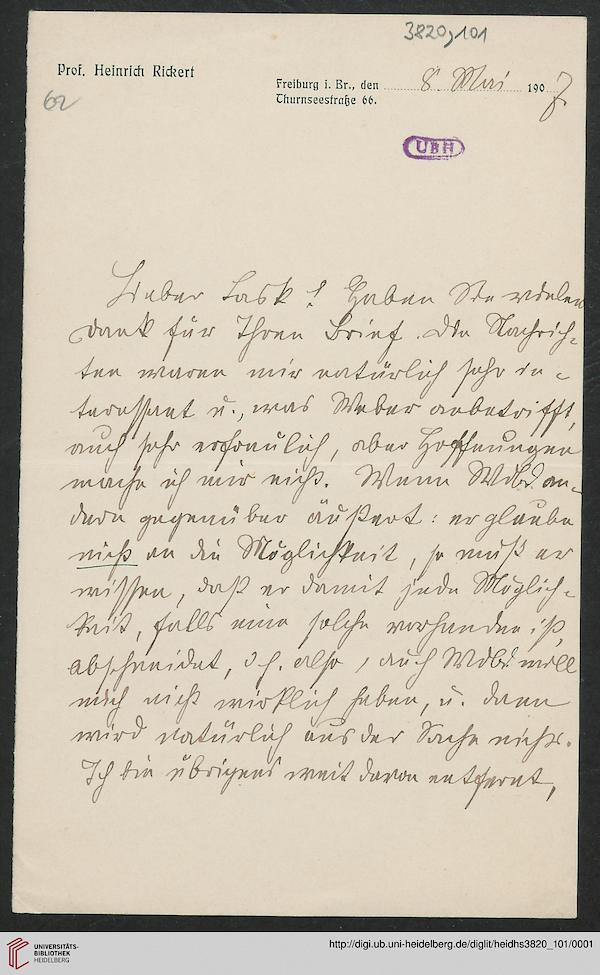 3820,101
Prof. Heinrich Rickert
62
Freiburg i. Br., den 8. Mai 1907
Thurnseestraße 66.
UBH
Lieber Lask! Haben Sie vielen
Dank für Ihren Brief. Die Nachrich-
ten waren mir natürlich sehr in-
teressant u., was Weber anbetrifft,
auch sehr erfreulich, aber Hoffnungen
mache ich mir nicht. Wenn Wdbd. an-
dern gegenüber äußert: er glaube
nicht an die Möglichkeit, so muß er
wissen, daß er damit jede Möglich-
keit, falls eine solche vorhanden ist,
abschneidet, d. h. also, auch Wdbd. will
mich nicht wirklich haben, u. dann
wird natürlich aus der Sache nichts.
Ich bin übrigens weit davon entfernt,
UNIVERSITÄTS-
BIBLIOTHEK
HEIDELBERG
http://digi.ub.uni-heidelberg.de/diglit/heidhs3820_101/0001